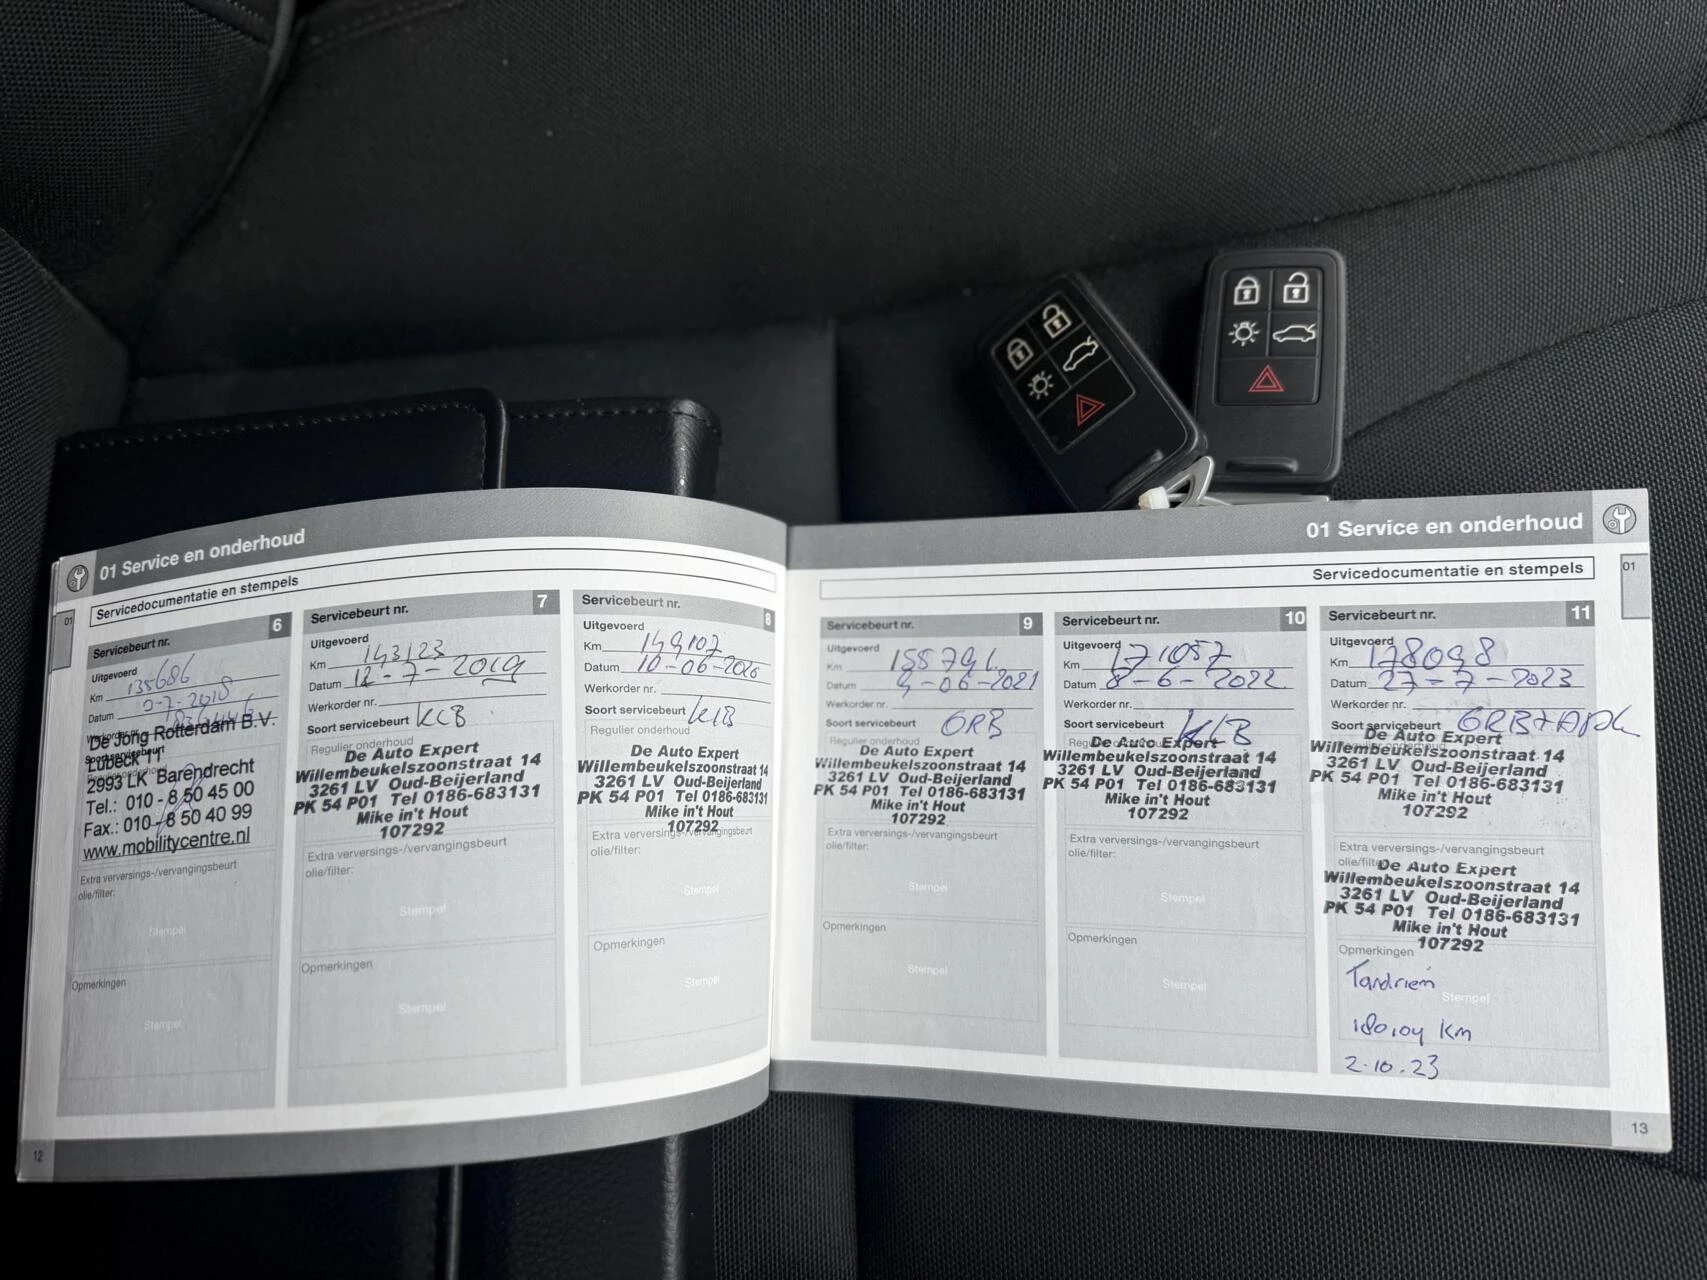 01 Service en onderhoud
Servicedocumentatie en stempels
01
Servicebeurt nr. 6
Uitgevoerd
Km 135686
Datum 3-7-2018
De Jong Rotterdam B.V.
Lübeck 11
2993 LK Barendrecht
Tel.: 010 - 8 50 45 00
Fax.: 010 - 8 50 40 99
www.mobilitycentre.nl
Extra verversings-/vervangingsbeurt
olie/filter:
Stempel
Opmerkingen
Stempel
Servicebeurt nr. 7
Uitgevoerd
Km 143123
Datum 12-7-2019
Werkorder nr.
Soort servicebeurt KCB
Regulier onderhoud
De Auto Expert
Willembeukelszoonstraat 14
3261 LV Oud-Beijerland
PK 54 P01 Tel 0186-683131
Mike in't Hout
107292
Extra verversings-/vervangingsbeurt
olie/filter:
Stempel
Opmerkingen
Stempel
Servicebeurt nr. 8
Uitgevoerd
Km 149107
Datum 10-06-2020
Werkorder nr.
Soort servicebeurt KLB
Regulier onderhoud
De Auto Expert
Willembeukelszoonstraat 14
3261 LV Oud-Beijerland
PK 54 P01 Tel 0186-683131
Mike in't Hout
107292
Extra verversings-/vervangingsbeurt
olie/filter:
Stempel
Opmerkingen
Stempel
12
01 Service en onderhoud
Servicedocumentatie en stempels
01
Servicebeurt nr. 9
Uitgevoerd
Km 158791
Datum 9-06-2021
Werkorder nr.
Soort servicebeurt GRB
Regulier onderhoud
De Auto Expert
Willembeukelszoonstraat 14
3261 LV Oud-Beijerland
PK 54 P01 Tel 0186-683131
Mike in't Hout
107292
Extra verversings-/vervangingsbeurt
olie/filter:
Stempel
Opmerkingen
Stempel
Servicebeurt nr. 10
Uitgevoerd
Km 171057
Datum 8-6-2022
Werkorder nr.
Soort servicebeurt KLB
De Auto Expert
Willembeukelszoonstraat 14
3261 LV Oud-Beijerland
PK 54 P01 Tel 0186-683131
Mike in't Hout
107292
Extra verversings-/vervangingsbeurt
olie/filter:
Stempel
Opmerkingen
Stempel
Servicebeurt nr. 11
Uitgevoerd
Km 178098
Datum 27-7-2023
Werkorder nr.
Soort servicebeurt GRB+APK
De Auto Expert
Willembeukelszoonstraat 14
3261 LV Oud-Beijerland
PK 54 P01 Tel 0186-683131
Mike in't Hout
107292
Extra verversings-/vervangingsbeurt
olie/filter:
De Auto Expert
Willembeukelszoonstraat 14
3261 LV Oud-Beijerland
PK 54 P01 Tel 0186-683131
Mike in't Hout
107292
Opmerkingen
Tandriem
Stempel
180.104 Km
2.10.23
13